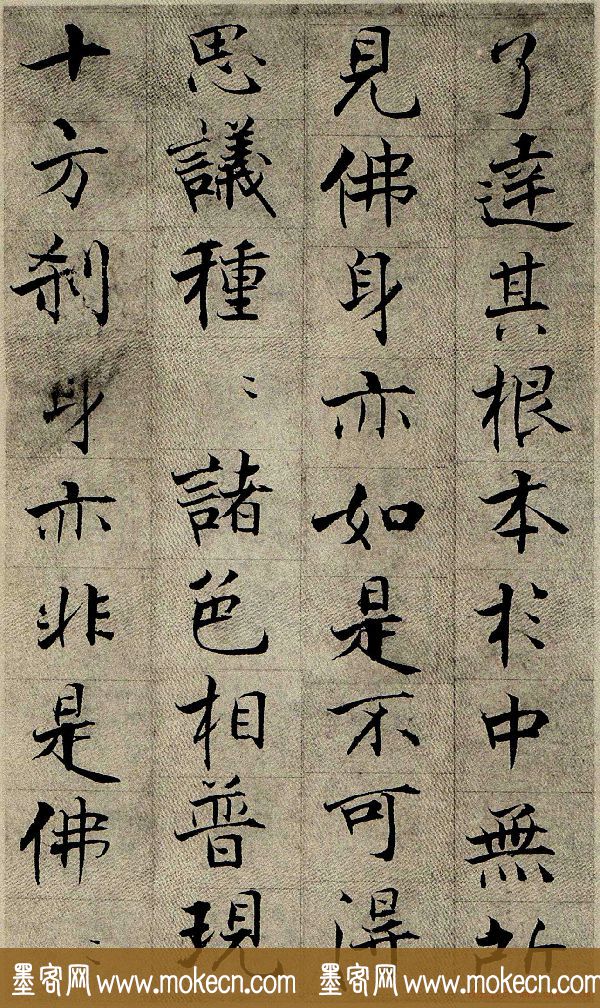 了達其根本扵中無所
見佛身亦如是不可得
思議種〻諸色相普現
十方刹身亦非是佛〻
墨客网 www.mokecn.com 墨客网 www.mokecn.com